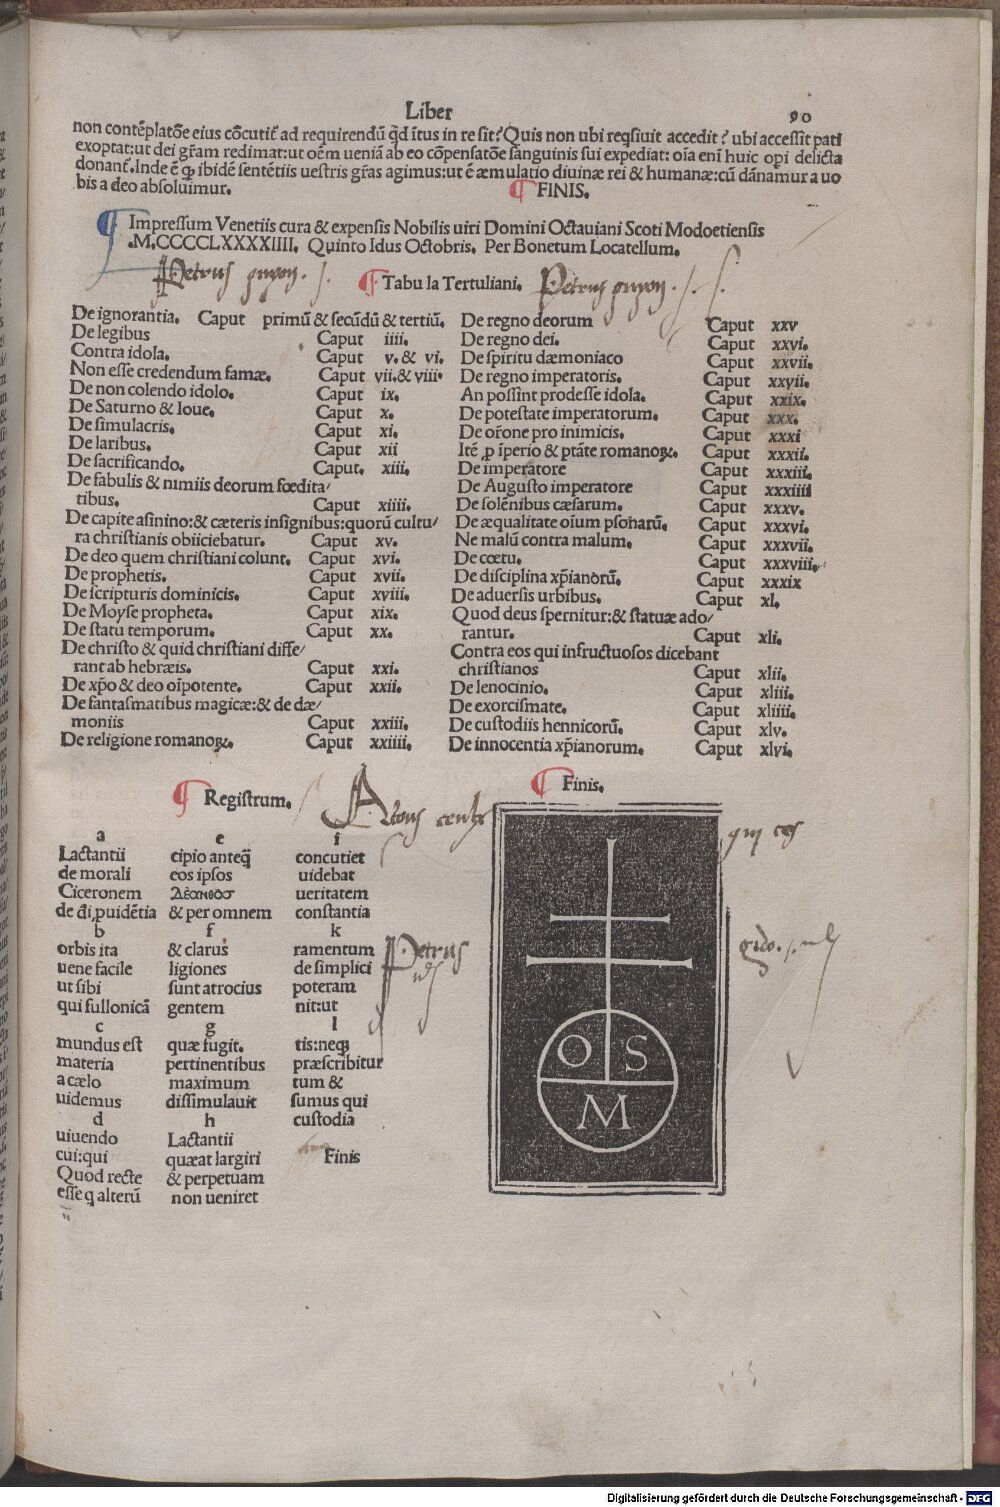 Liber 90
non contēplatōe eius cōcutit̄ ad requirendū q̄d ītus in re sit? Quis non ubi reqsiuit accedit? ubi accessit pati
exoptat: ut dei gr̄am redimat: ut oēm ueniā ab eo cōpensatōe sanguinis sui expediat: oīa enī huic opi delicta
donant̄. Inde ē ꝙ ibidē sentētiis uestris gr̄as agimus: ut ē æmulatio diuinæ rei & humanæ: cū dānamur a uo
bis a deo absoluimur. ¶ FINIS.
¶ Impressum Venetiis cura & expensis Nobilis uiri Domini Octauiani Scoti Modoetiensis
.M.CCCCLXXXXIIII. Quinto Idus Octobris. Per Bonetum Locatellum.
Petrus
Petrus
¶ Tabu la Tertuliani.
De ignorantia. Caput primū & secūdū & tertiū.
De legibus Caput iiii.
Contra idola. Caput v. & vi.
Non esse credendum famæ. Caput vii. & viii.
De non colendo idolo. Caput ix.
De Saturno & Ioue. Caput x.
De simulacris. Caput xi.
De laribus. Caput xii
De sacrificando. Caput. xiii.
De fabulis & nimiis deorum fœdita/
tibus. Caput xiiii.
De capite asinino: & cæteris insignibus: quorū cultu/
ra christianis obiiciebatur. Caput xv.
De deo quem christiani colunt. Caput xvi.
De prophetis. Caput xvii.
De scripturis dominicis. Caput xviii.
De Moyse propheta. Caput xix.
De statu temporum. Caput xx.
De christo & quid christiani diffe/
rant ab hebræis. Caput xxi.
De xp̄o & deo oīpotente. Caput xxii.
De fantasmatibus magicæ: & de dæ/
moniis Caput xxiii.
De religione romanoꝝ. Caput xxiiii.
De regno deorum Caput xxv
De regno dei. Caput xxvi.
De spiritu dæmoniaco Caput xxvii.
De regno imperatoris. Caput xxvii.
An possint prodesse idola. Caput xxix.
De potestate imperatorum. Caput xxx.
De or̄one pro inimicis. Caput xxxi
Itē ꝓ īperio & ptāte romanoꝝ. Caput xxxii.
De imperatore Caput xxxiii.
De Augusto imperatore Caput xxxiiii
De solēnibus cæsarum. Caput xxxv.
De æqualitate oīum psonarū. Caput xxxvi.
Ne malū contra malum. Caput xxxvii.
De cœtu. Caput xxxviii.
De disciplina xp̄ianorū. Caput xxxix
De aduersis urbibus. Caput xl.
Quod deus spernitur: & statuæ ado/
rantur. Caput xli.
Contra eos qui infructuosos dicebant
christianos Caput xlii.
De lenocinio. Caput xliii.
De exorcismate. Caput xliiii.
De custodiis hennicorū. Caput xlv.
De innocentia xp̄ianorum. Caput xlvi.
¶ Registrum.
¶ Finis.
a
Lactantii
de morali
Ciceronem
de di,puidētia
b
orbis ita
uene facile
ut sibi
qui fullonicā
c
mundus est
materia
a cælo
uidemus
d
uiuendo
cui: qui
Quod recte
esse q alterū
e
cipio anteq̄
eos ipsos
Δέανθοσ
& per omnem
f
& clarus
ligiones
sunt atrocius
gentem
g
quæ fugit.
pertinentibus
maximum
dissimulauit
h
Lactantii
quæat largiri
& perpetuam
non ueniret
i
concutiet
uidebat
ueritatem
constantia
k
ramentum
de simplici
poteram
nit: ut
l
tis: neqꝫ
præscribitur
tum &
sumus qui
custodia
Finis
Petrus
O S
M
Digitalisierung gefördert durch die Deutsche Forschungsgemeinschaft - DFG